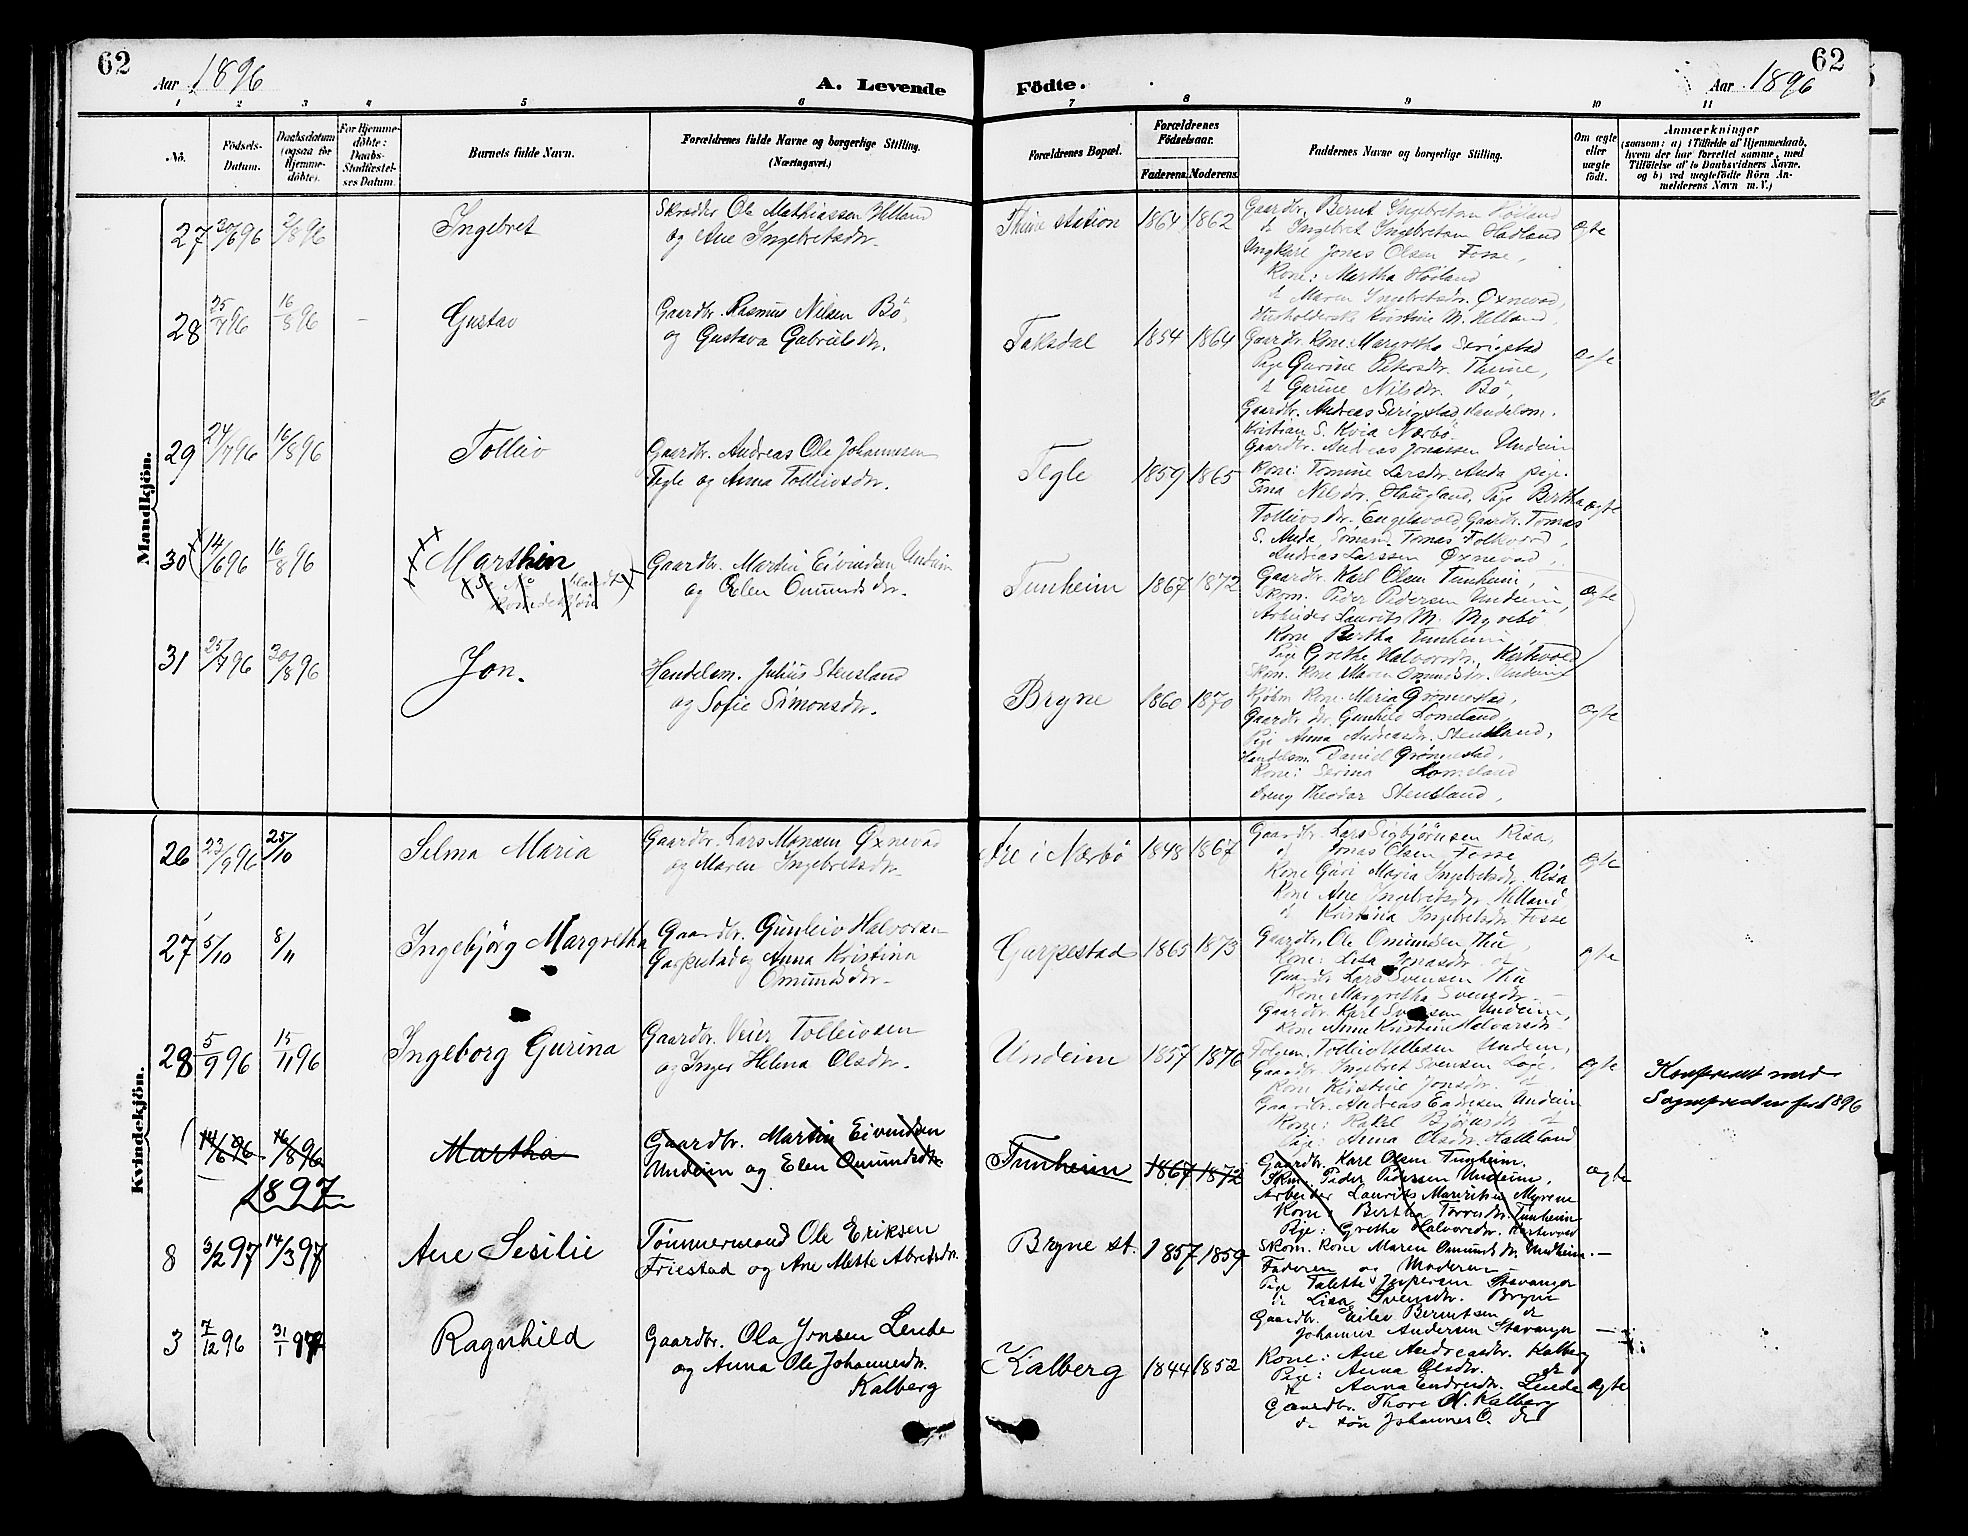 62
Aar 1896
A. Levende
Födte.
Aar 1896
62
1 2 3 4 5 6 7 8 9 10 11
No.
Födsels-Datum.
Daabsdatum (ogsaa for Hjemmedöbte).
For Hjemmedöbte: Daabs-Stadfæstelses Datum.
Barnets fulde Navn.
Forældrenes fulde Navne og borgerlige Stilling. (Næringsvei.)
Forældrenes Bopæl.
Forældrenes Födselsaar.
Faderens. Moderens.
Faddernes Navne og borgerlige Stilling.
Om ægte eller uægte födt.
Anmærkninger
(saasom: a) i Tilfælde af Hjemmedaab, hvem der har forrettet samme, med Tilföielse af to Daabsvidners Navne, og b) ved uægtefödte Börn Anmelderens Navn m. V.)
Mandkjön.
27 20/6 96 2/8 96 Ingebret
Skrædder Ole Mathiassen Helland
og Ane Ingebretsdtr.
Thime station 1864 1862
Gaardbr. Bernt Ingebretsen Høiland
d Ingebret Ingebretsen Hadland
Ungkarl Jonas Olsen Fosse,
Kone: Martha Høiland
d Maren Ingebretsdr. Øxnevad,
Husholderske Kristine M. Helland,
ægte
28 25/7 96 16/8 96 – Gustav
Gaardbr. Rasmus Nilsen Bö,
og Gustava Gabrielsdr.
Taksdal 1854 1864
Gaardbr. Kone Margretha Serigstad
Pige Gurine Petersdr. Thime,
d Gurine Nilsdr. Bö,
Gaardbr. Andreas Serigstad Handelsm.
Kristian S. Kvia Nærbö
ægte
29 24/7 96 16/8 96 Tolleiv
Gaardbr. Andreas Ole Johannesen
Tegle og Anna Tolleivsdr.
Tegle 1859 1865
Gaardbr. Andreas Jonassen Undeim
Kone: Tomine Larsdr. Auda pige.
Tina Nilsdr. Haugland, Pige Bertha
Tolleivsdr. Engelsvold, Gaardbr. Tomas
S. Auda, Sømand Tomas Folkvord,
Andreas Larssen Øxnevad,
ægte
30 14/6 96 16/8 96 Marthin
Gaardbr. Martin Eivindsen Undeim
og Elen Omundsdr.
Tunheim 1867 1872
Gaardbr. Karl Olsen Tunheim,
Skom. Peder Pedersen Undeim,
Arbeider Laurits M. Myrebö
Kone Bertha Tunheim
Pige Grethe Halvorsdr. Kartevold
Skom. Kone Maren Omundsdr. Undeim
ægte
31 25/7 96 30/8 96 Jon.
Handelsm. Julius Stensland
og Sofie Simonsdr.
Bryne 1860 1870
Kjøbm. Kone: Maria Grønnestad,
Gaardbr. dr. Gunhild Lomeland,
Pige Anna Andreasdr. Stensland,
Handelsm. Daniel Grønnestad,
Kone: Serina Lomeland
Dreng Theodor Stensland,
ægte
Kvindekjön.
26 23/9 96 25/10 Selma Maria
Gaardbr. Lars Monsen Øxnevad
og Maren Ingebretsdr.
Are i Nærbö 1848 1867
Gaardbr. Lars Sigbjørnsen Risa,
d Jonas Olsen Fosse
Kone Guri Maria Ingebretsdr. Risa
Kone Ane Ingebretsdr. Helland
d Kristina Ingebretsdr. Fosse
ægte
27 5/10 8/11 Ingebjörg Margretha
Gaardbr. Gunleiv Halvorsen
Garpestad og Anna Kristina
Omundsdr.
Garpestad 1865 1873
Gaardbr. Ole Omundsen Thu,
Kone: Lisa Jonasdr. d
Gaardbr. Lars Svensen Thu
Kone Margretha Svensdr. –
Gaardbr. Karl Svensen Undeim,
Kone Anne Kristine Halvorsdr.
ægte
28 5/9 96 15/11 96 Ingeborg Gurina
Gaardbr. Veier Tolleivsen
og Inger Helena Olsdr.
Undeim 1857 1876
Folgem. Tolleiv Undeim,
Gaardbr. Ingebret Svensen Løge,
Kone Kirstine Jonsdr. d
Gaardbr. Andreas Endresen Undeim
Kone: Rakel Bjørnsdr. d
Pige: Anna Olsdr. Halleland
ægte
Konfereret med
Sognepresten for 1896
14/6 96 16/8 96 Martha
Gaardbr. Martin Eivindsen
Undeim og Elen Omundsdtr.
Tunheim 1867 1872
Gaardbr. Karl Olsen Tunheim.
Skm. Peder Pedersen Undeim,
Arbeider Laurits Mauritsen Myrene
Kone: Bertha Torresdr. Tunheim
Pige: Grethe Halvorsdr. Kartevold
Skom. Kone Maren Omundsdr. Undheim.
ægte
1897
8 3/2 97 14/3 97 Ane Sesilie
Tømmermand Ole Eriksen
Friestad og Ane Mette Abretsdr.
Bryne st. 1857 1859
Faderen og Moderen –
Pige Talette Jespersen Stavanger
d Lisa Svensdr. Bryne
Gaardbr. Eilev Berentsen d
Johannes Andersen Stavanger
–
3 7/12 96 31/1 97 Ragnhild
Gaardbr. Ola Jonsen Lende
og Anna Ole Johannesdr.
Kalberg
Kalberg 1844 1852
Kone: Ane Andreasdr. Kalberg
Pige: Anna Olsdr. d
d Anna Endresdr. Lende
Gaardbr. Thore O. Kalberg
d søn Johannes O. d
ægte